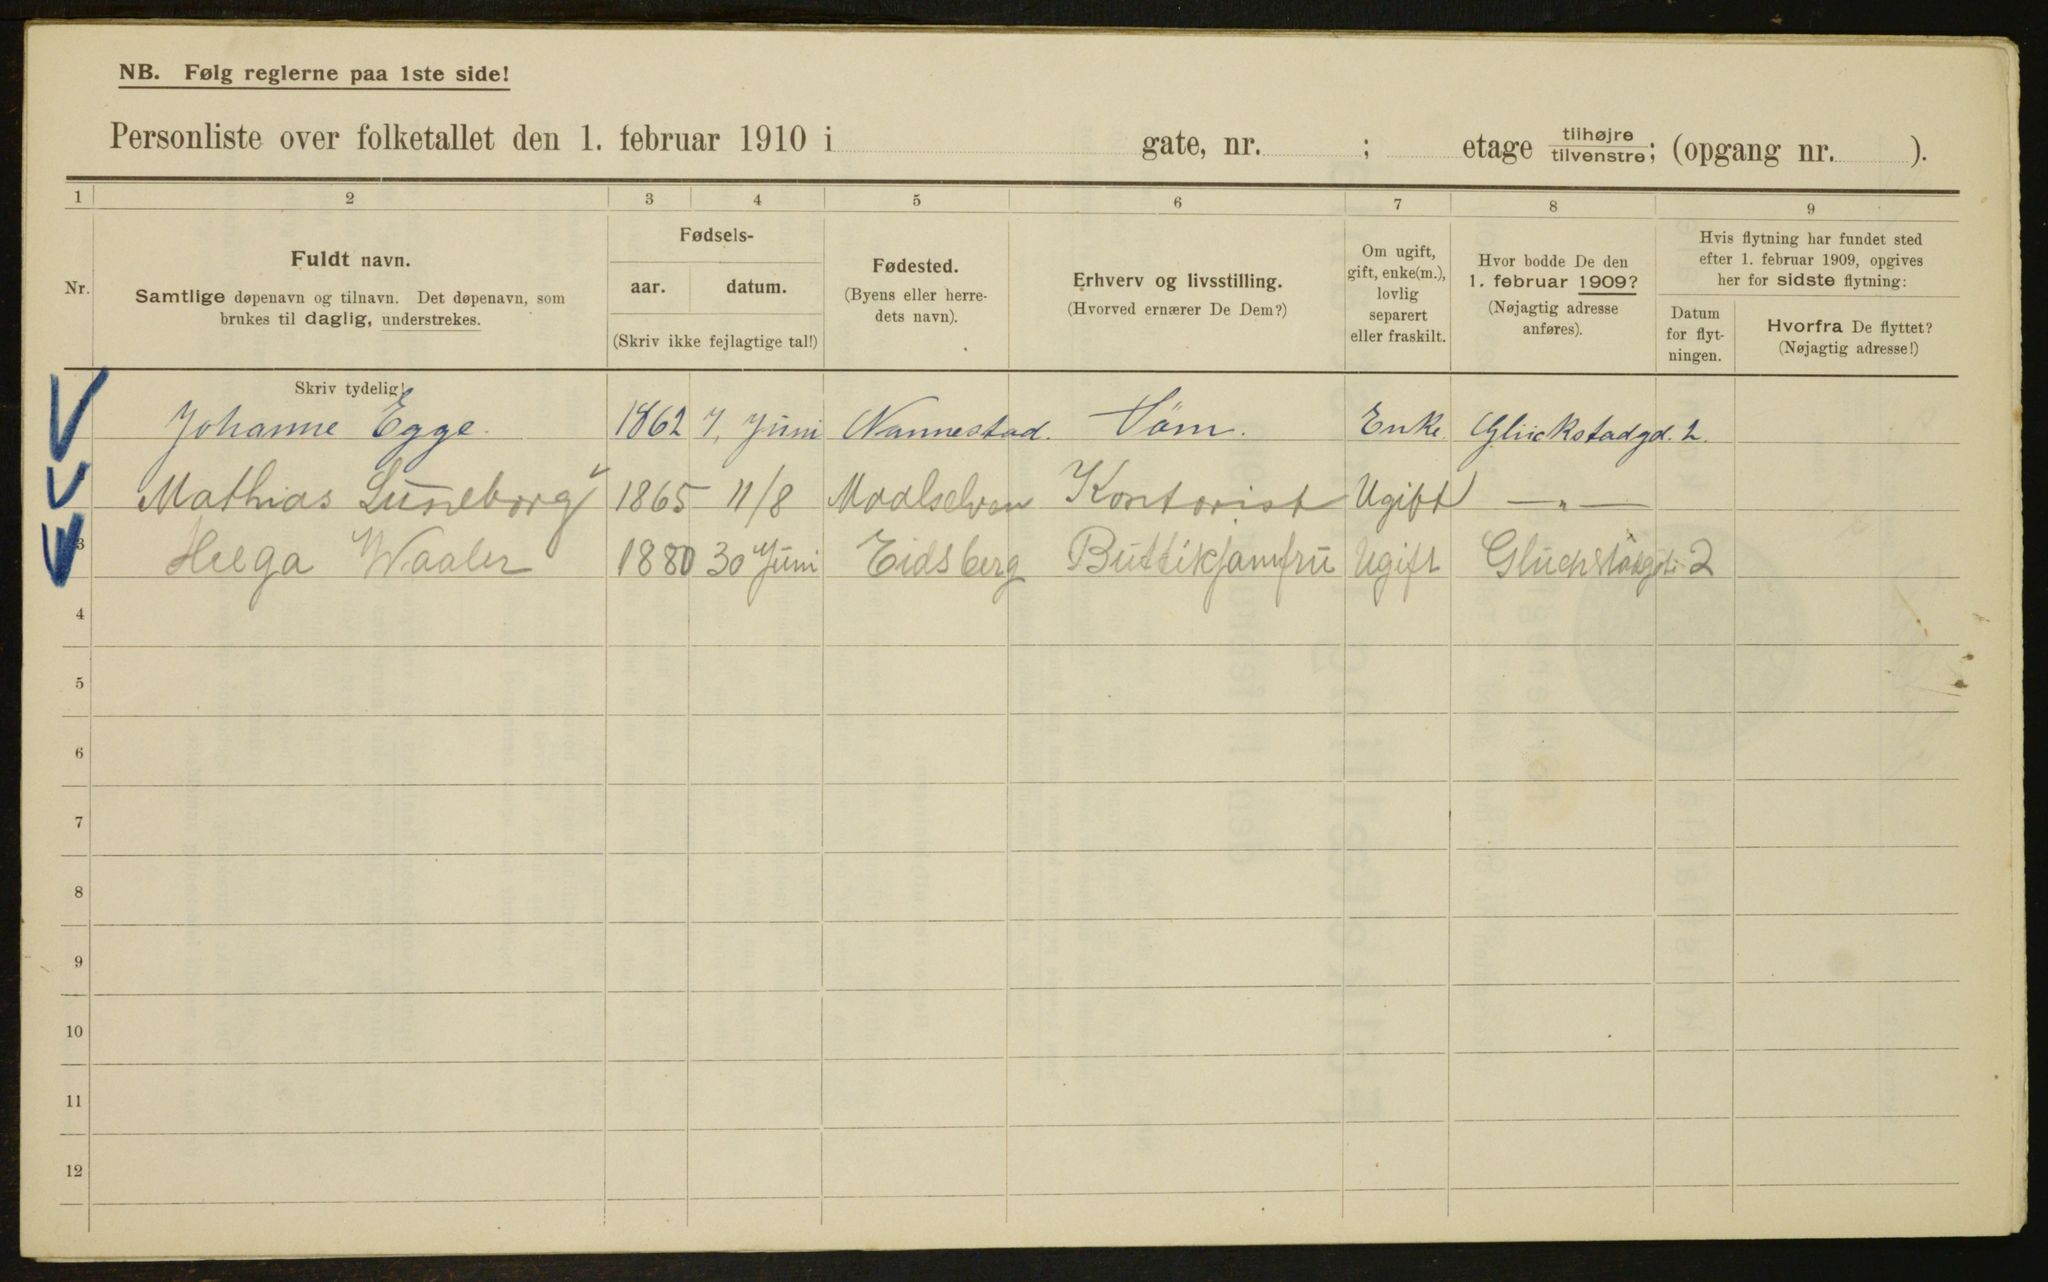 NB. Følg reglerne paa 1ste side!
Personliste over folketallet den 1. februar 1910 i gate, nr. ; etage tilhøjre/tilvenstre; (opgang nr. ).
1 2 3 4 5 6 7 8 9
Nr.
Fuldt navn.
Samtlige døpenavn og tilnavn. Det døpenavn, som
brukes til daglig, understrekes.
Skriv tydelig!
Fødsels-
aar. datum.
(Skriv ikke fejlagtige tal!)
Fødested.
(Byens eller herre-
dets navn).
Erhverv og livsstilling.
(Hvorved ernærer De Dem?)
Om ugift,
gift, enke(m.),
lovlig
separert
eller fraskilt.
Hvor bodde De den
1. februar 1909?
(Nøjagtig adresse
anføres).
Hvis flytning har fundet sted
efter 1. februar 1909, opgives
her for sidste flytning:
Datum
for flyt-
ningen.
Hvorfra De flyttet?
(Nøjagtig adresse!)
Johanne Egge. 1862 7, Juni Nannestad. Söm. Enke. Glückstadgd. 2.
Mathias Luneborg 1865 11/8 Maalselven Kontorist Ugift — „ —
3 Helga Waaler 1880 30 Juni Eidsberg Buttikjamfru Ugift 2
4
5
6
7
8
9
10
11
12